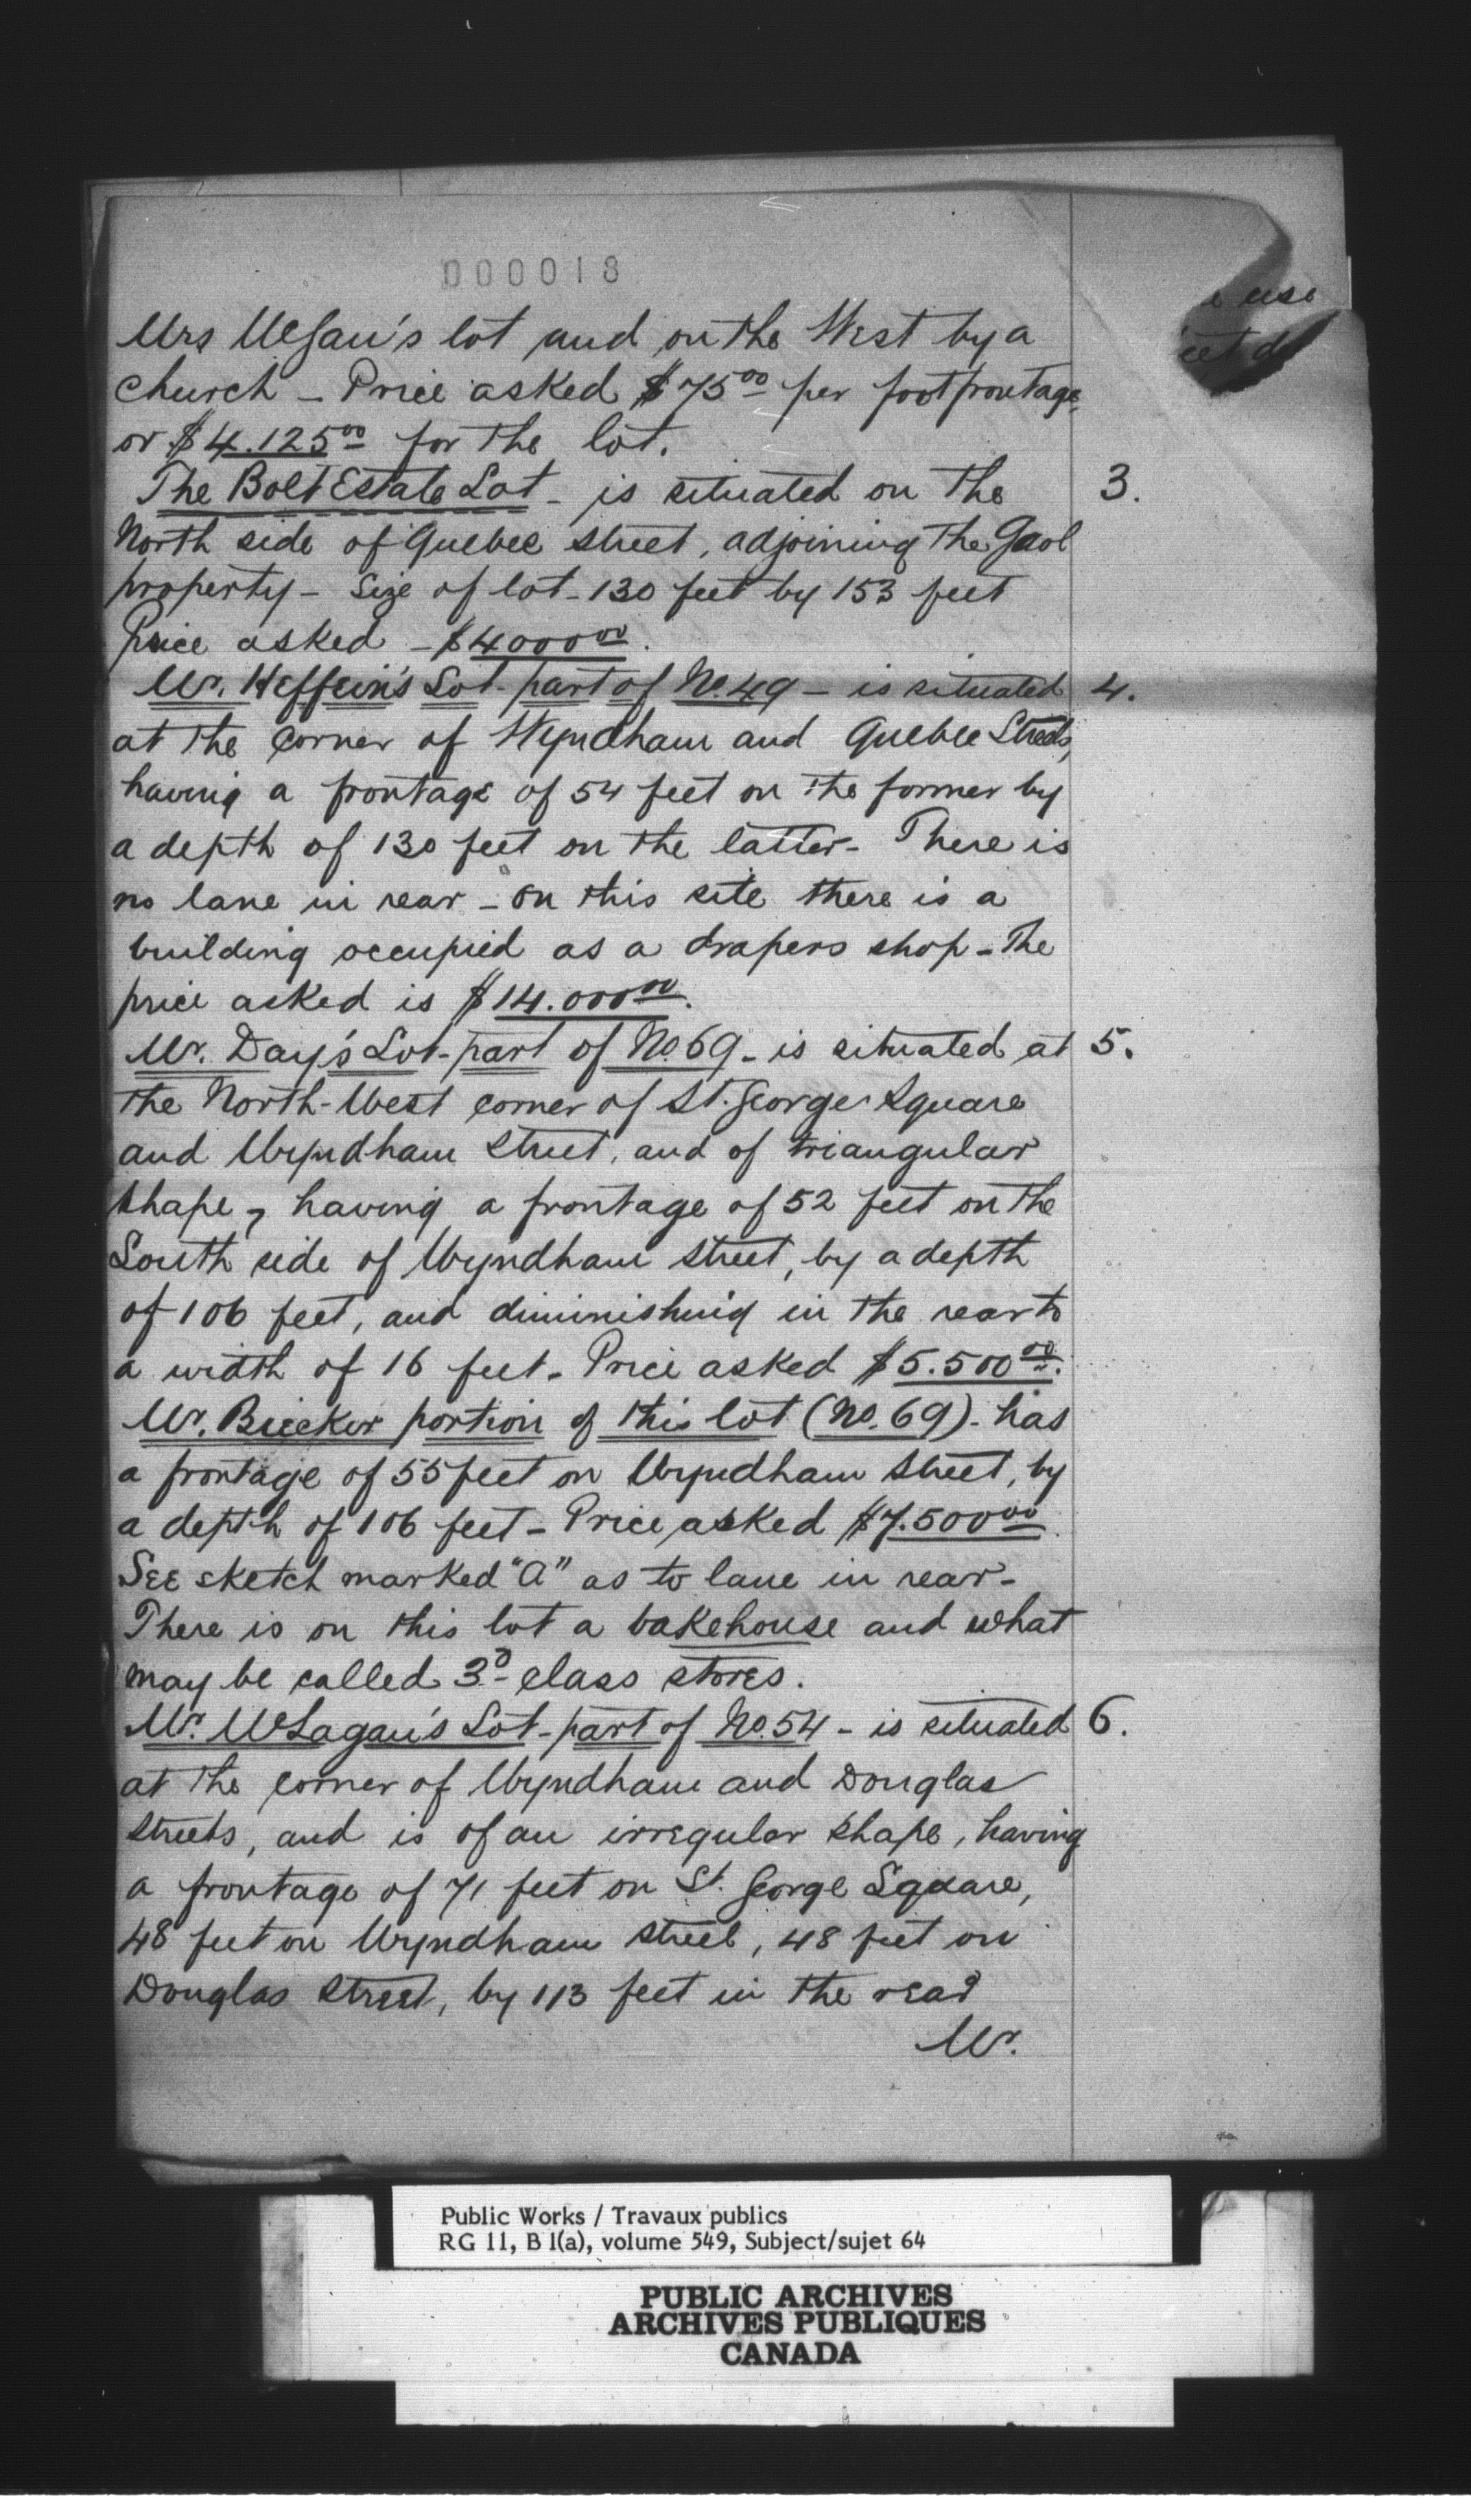 000018
e use
eet d
Mrs McGau's lot and on the West by a
church – Price asked $75.00 per foot frontage,
or $4.125.00 for the lot.
The Bolt Estate Lot – is situated on the 3.
North side of Quebec Street, adjoining the Gaol
property – Size of lot – 130 feet by 153 feet
Price asked – $4000.00.
Mr. Heffern's Lot – part of No. 49 – is situated 4.
at the corner of Wyndham and Quebec Streets,
having a frontage of 54 feet on the former by
a depth of 130 feet on the latter – There is
no lane in rear – On this site there is a
building occupied as a drapers shop – The
price asked is $14.000.00.
Mr. Day's Lot – part of No. 69 – is situated at 5.
the North-West corner of St. George Square
and Wyndham Street, and of triangular
shape, having a frontage of 52 feet on the
South side of Wyndham Street, by a depth
of 106 feet, and diminishing in the rear to
a width of 16 feet – Price asked $5.500.00.
Mr. Bricker portion of this lot (No. 69) – has
a frontage of 55 feet on Wyndham Street, by
a depth of 106 feet – Price asked $7.500.00
See sketch marked "A" as to lane in rear –
There is on this lot a bakehouse and what
may be called 3d class stores.
Mr. McLagan's Lot – part of No. 54 – is situated 6.
at the corner of Wyndham and Douglas
Streets, and is of an irregular shape, having
a frontage of 71 feet on St. George Square,
48 feet on Wyndham Street, 48 feet on
Douglas Street, by 113 feet in the rear
Mr.
Public Works / Travaux publics
RG 11, B 1(a), volume 549, Subject/sujet 64
PUBLIC ARCHIVES
ARCHIVES PUBLIQUES
CANADA